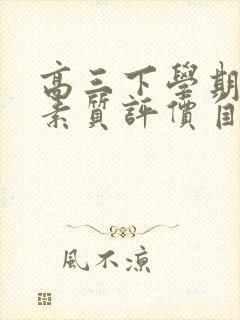 高三下學期
素質評價自
風不涼